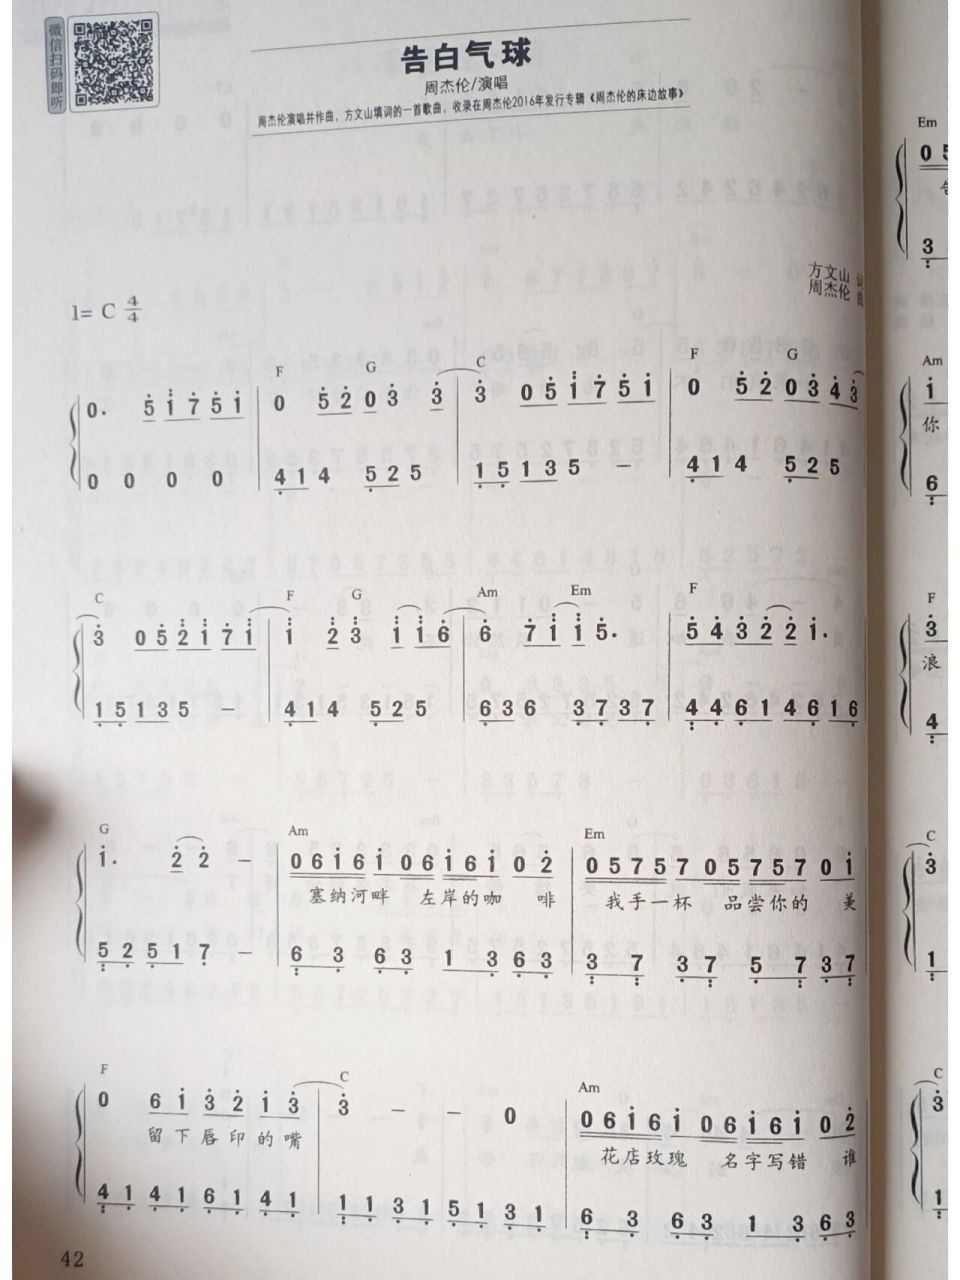 微信扫码即听
告白气球
周杰伦/演唱
周杰伦演唱并作曲，方文山填词的一首歌曲，收录在周杰伦2016年发行专辑《周杰伦的床边故事》
方文山 词
周杰伦 曲
1= C 4/4
F G C F G
0. 5 1 7 5 1 | 0 5 2 0 3 3 | 3 0 5 1 7 5 1 | 0 5 2 0 3 4 3
0 0 0 0 | 4 1 4 5 2 5 | 1 5 1 3 5 — | 4 1 4 5 2 5
C F G Am Em F
3 0 5 2 1 7 1 | 1 2 3 1 1 6 | 6 7 1 1 5. | 5 4 3 2 2 1.
1 5 1 3 5 — | 4 1 4 5 2 5 | 6 3 6 3 7 3 7 | 4 4 6 1 4 6 1 6
G Am Em
1. 2 2 — | 0 6 1 6 1 0 6 1 6 1 0 2 | 0 5 7 5 7 0 5 7 5 7 0 1
塞纳河畔 左岸的咖 啡 我手一杯 品尝你的 美
5 2 5 1 7 — | 6 3 6 3 1 3 6 3 | 3 7 3 7 5 7 3 7
F C Am
0 6 1 3 2 1 3 | 3 — — 0 | 0 6 1 6 1 0 6 1 6 1 0 2
留下唇印的嘴 花店玫瑰 名字写错 谁
4 1 4 1 6 1 4 1 | 1 1 3 1 5 1 3 1 | 6 3 6 3 1 3 6 3
42
Em
0 5
3
Am
1
你
6
F
3
浪
4
C
3
1
C
3
1